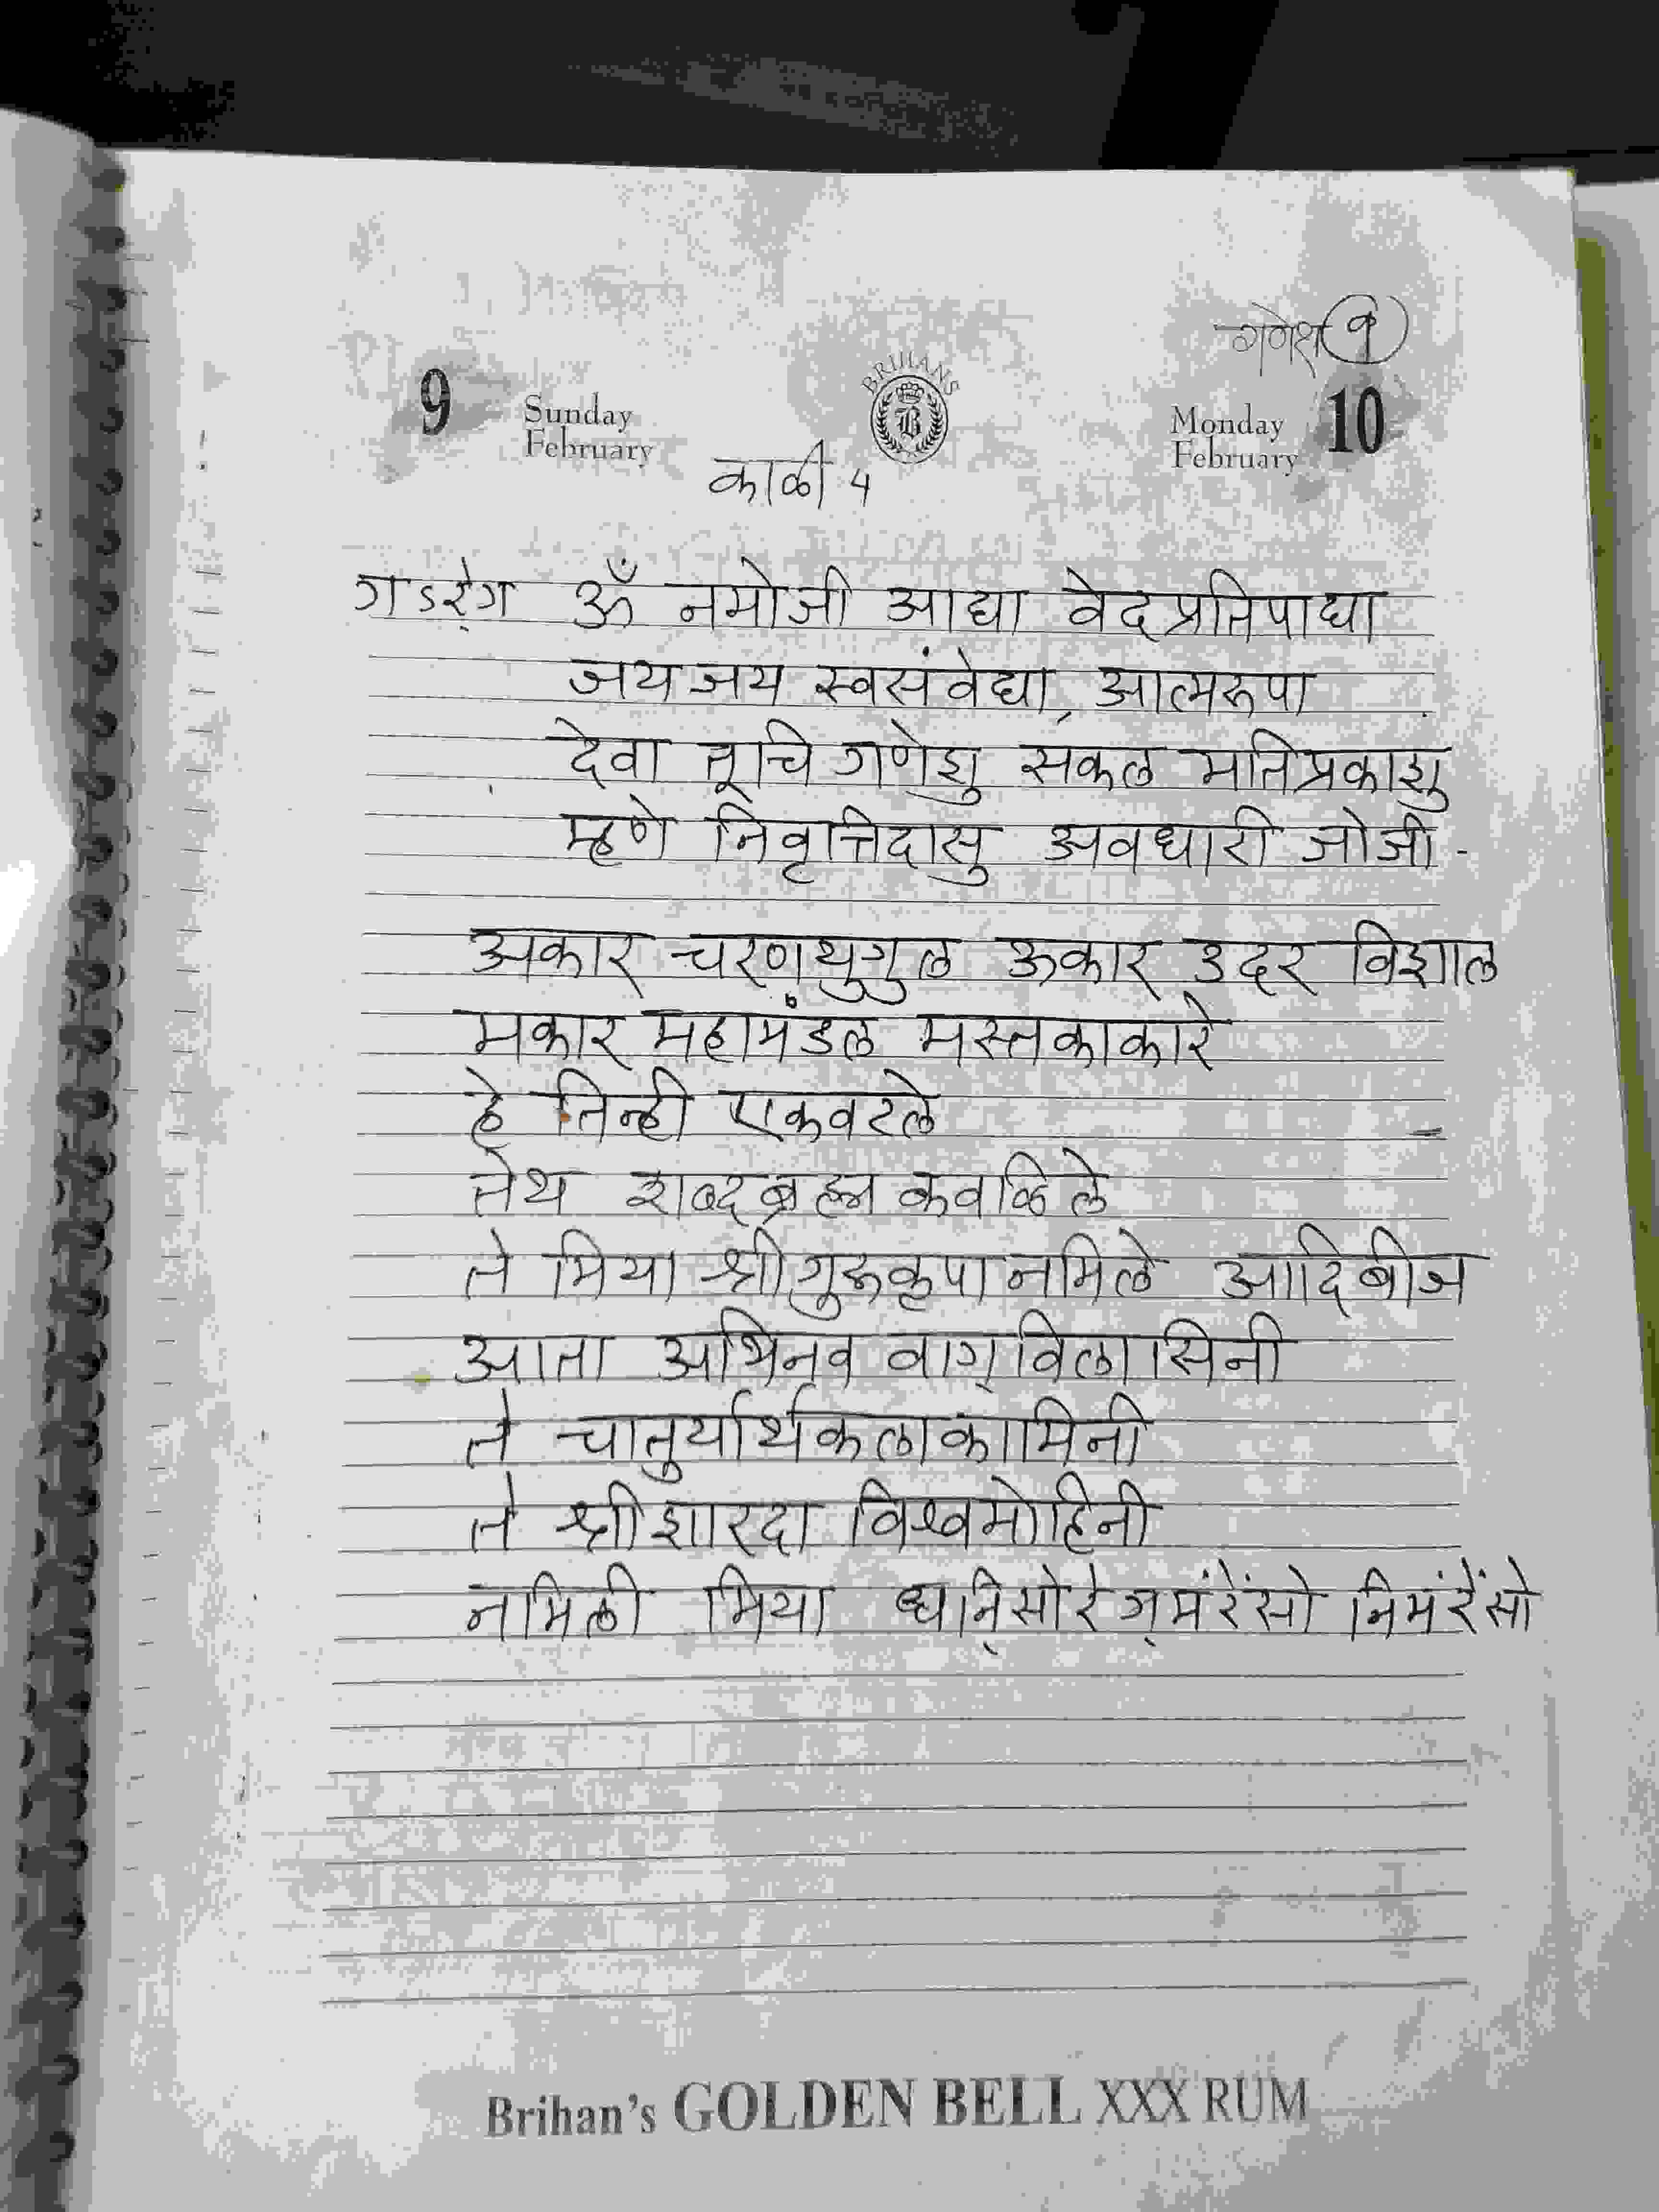 गणेश १
BRIHANS
B
9 Sunday February
Monday February 10
काळी 4
गऽरे॒ग ॐ नमोजी आद्या वेद प्रतिपाद्या
जय जय स्वसंवेद्या, आत्मरूपा
देवा तूचि गणेशु सकल मतिप्रकाशु
म्हणे निवृत्तिदासु अवधारी जोजी -
अकार चरणयुगुल ऊकार उदर विशाल
मकार महामंडल मस्तकाकारे
हे तिन्ही एकवटले
तेथ शब्दब्रह्म कवळिले
ते मिया श्रीगुरूकृपा नमिले आदिबीज
आता अभिनव वाग्विलासिनी
ते चातुर्यार्थकलाकामिनी
ते श्रीशारदा विश्वमोहिनी
नमिली मिया
Brihan's GOLDEN BELL XXX RUM